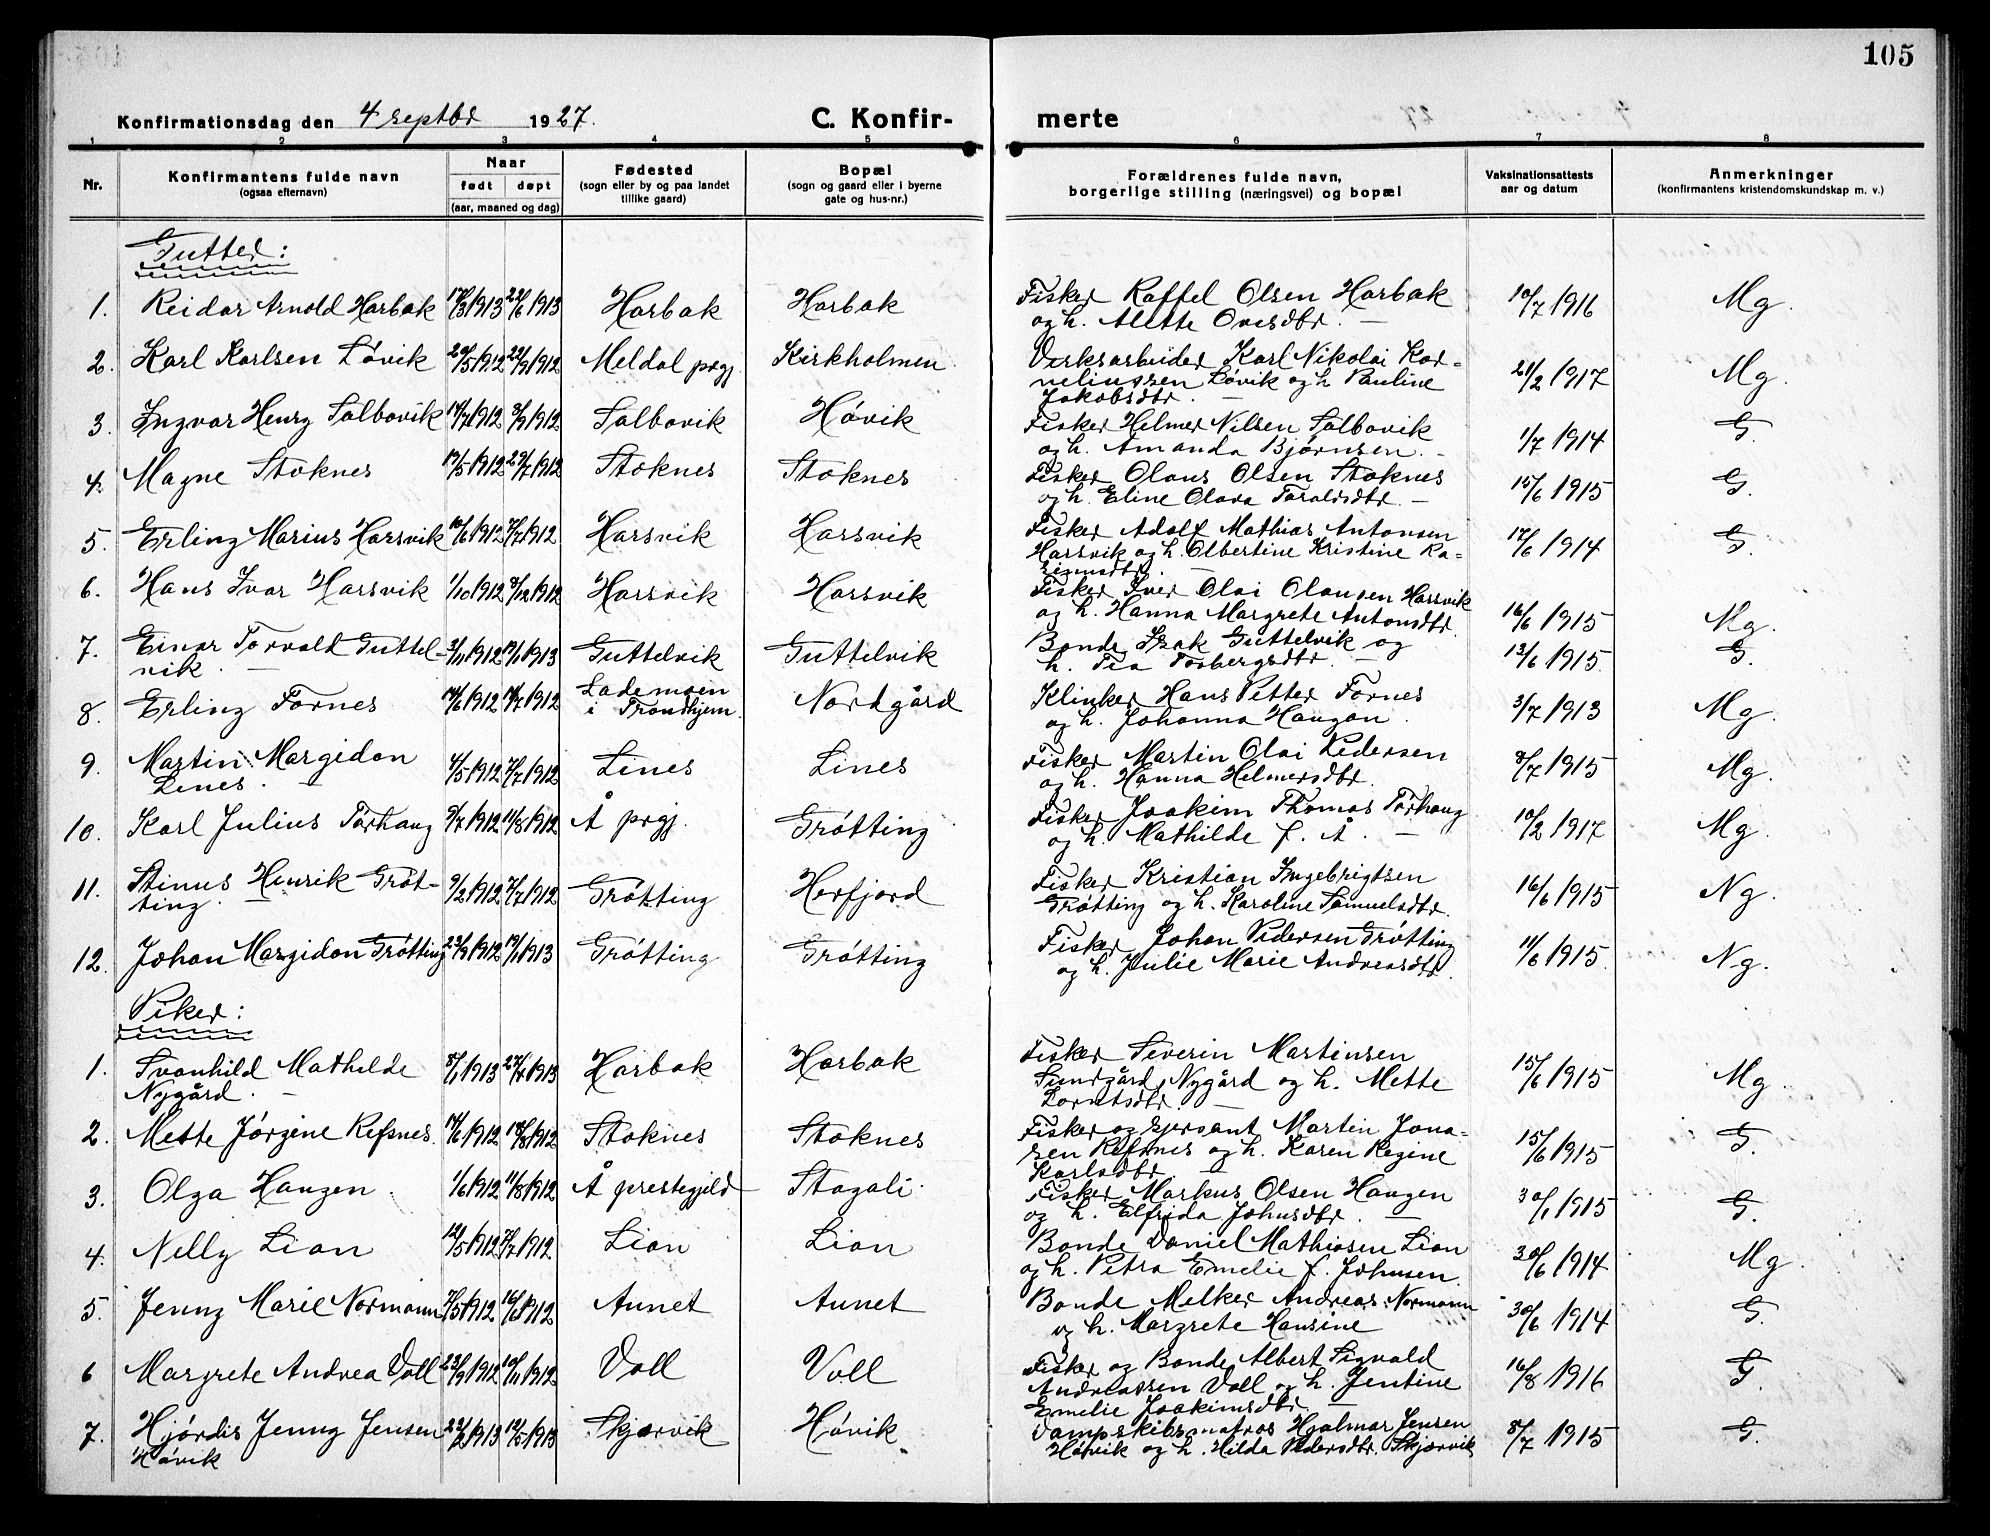 105
Konfirmationsdag den 4 septbr 1927.
C. Konfir-
merte
1 2 3 4 5 6 7 8
Nr.
Konfirmantens fulde navn
(ogsaa efternavn)
Naar
født døpt
(aar, maaned og dag)
Fødested
(sogn eller by og paa landet
tillike gaard)
Bopæl
(sogn og gaard eller i byerne
gate og hus-nr.)
Forældrenes fulde navn,
borgerlige stilling (næringsvei) og bopæl
Vaksinationsattests
aar og datum
Anmerkninger
(konfirmantens kristendomskundskap m. v.)
Gutter:
1. Reidar Arnold Harbak 17/3 1913 22/6 1913 Harbak Harbak Fisker Raffel Olsen Harbak 10/7 1916 Mg.
og h. Alette Ovesdtr. —
2. Karl Karlsen Løvik 20/5 1912 22/9 1912 Meldal prgj. Kirkholmen Verksarbeider Karl Nikolai Kor- 21/2 1917 Mg.
neliussen Løvik og h. Pauline
Jakobsdtr. —
3. Ingvar Henry Salbovik 14/7 1912 8/9 1912 Salbovik Høvik Fisker Helmer Nilsen Salbovik 1/7 1914 G.
og h. Amanda Bjørnsen. —
4. Magne Stoknes 19/5 1912 29/7 1912 Stoknes Stoknes Fisker Olaus Olsen Stoknes 15/6 1915 G.
og h. Eline Olava Taraldsdtr. —
5. Erling Marius Harsvik 10/6 1912 7/7 1912 Harsvik Harsvik Fisker Adolf Mathias Antonsen 17/6 1914 G.
Harsvik og h. Olbertine Kristine Ra-
6. Hans Ivar Harsvik 1/10 1912 8/12 1912 Harsvik Harsvik Fisker Iver Olai Olausen Harsvik 16/6 1915 Mg.
og h. Hanna Margrete Antonsdtr.
7. Einar Torvald Guttel- 3/11 1912 19/1 1913 Guttelvik Guttelvik Bonde Isak Guttelvik og 13/6 1915 G.
vik. — h. Tea Torbergsdtr. —
8. Erling Fornes 14/6 1912 14/7 1912 Lademoen Nordgård Klinker Hans Petter Fornes 3/7 1913 Mg.
i Trondhjem. og h. Johanna Haugan.
9. Martin Margidon 4/5 1912 7/7 1912 Lines Lines Fisker Martin Olai Pedersen 8/7 1915 Mg.
Lines. — og h. Hanna Helmersdtr.
10. Karl Julius Tørhaug 9/7 1912 11/8 1912 Å prgj. Grøtting Fisker Joakim Thomas Tørhaug 10/2 1917 Mg.
og h. Mathilde f. Å. —
11. Stinus Henrik Grøt- 9/2 1912 7/7 1912 Grøtting Herfjord Fisker Kristian Ingebrigtsen 16/6 1915 Ng.
ting. — Grøtting og h. Karoline Samuelsdtr.
12. Johan Margidon Grøtting 23/9 1912 19/1 1913 Grøtting Grøtting Fisker Johan Pedersen Grøtting 11/6 1915 Ng.
og h. Julie Marie Andreasdtr.
Piker:
1. Svanhild Mathilde 8/1 1913 27/4 1913 Harbak Harbak Fisker Severin Martinsen 15/6 1915 Mg.
Nygård. — Sundgård, Nygård og h. Mette
Lorntsdtr. —
2. Mette Jørgine Refsnes. 14/6 1912 18/8 1912 Stoknes Stoknes Fisker og sjersant Martin Jona- 15/6 1915 G.
sen Refsnes og h. Karen Regine
Karlsdtr —
3. Olga Haugen. 1/6 1912 11/8 1912 Å prestegjeld Fisker Markus Olsen Haugen 30/1 1915 G.
og h. Elfrida Johnsdtr. —
4. Nelly Lian 12/5 1912 7/7 1912 Lian Lian Bonde Daniel Mathiasen Lian 30/6 1914 Mg.
og h. Petra Emelie f. Johnsen.
5. Jenny Marie Normann 7/5 1912 16/6 1912 Aunet Aunet Bonde Melker Andreas Normann 30/6 1914 G.
og h. Margrete Hansine
6 Margrete Andrea Voll 23/9 1912 10/11 1912. Voll Voll Fisker og Bonde Albert Sigvald 16/8 1916 G.
Andreassen Voll og h. Jentine
Emelie Joakimsdtr. —
7. Hjørdis Jenny Jensen 22/2 1913 12/5 1913 Skjærvik Høvik Dampskibsmatros Hjalmar Jensen 8/7 1915 G.
Høvik Høvik og h. Hilda Pedersdtr. Skjærvik